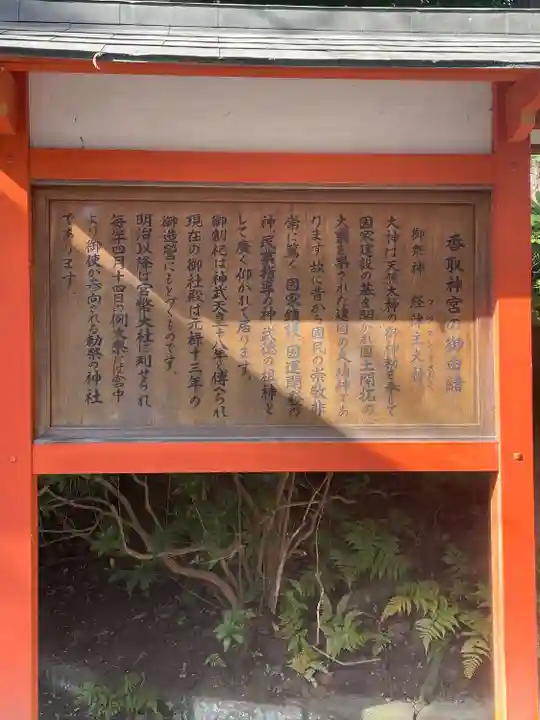 香取神宮の御由緒
御祭神 経津主大神
大神は天照大神の御神勅を奉じて
国家建設の基を開かれ国土開拓の
大業を果された建国の大功神であ
ります故に昔から国民の崇敬非
常に篤く国家鎮護、国運開発の
神、民業指導の神、武徳の祖神と
して広く仰がれて居ります。
御創祀は神武天皇十八年と傳へられ
現在の御社殿は元禄十三年の
御造営にもとづくものです。
明治以降は官幣大社に列せられ
毎年四月十四日の例大祭には宮中
より御使が参向される勅祭の神社
であります。